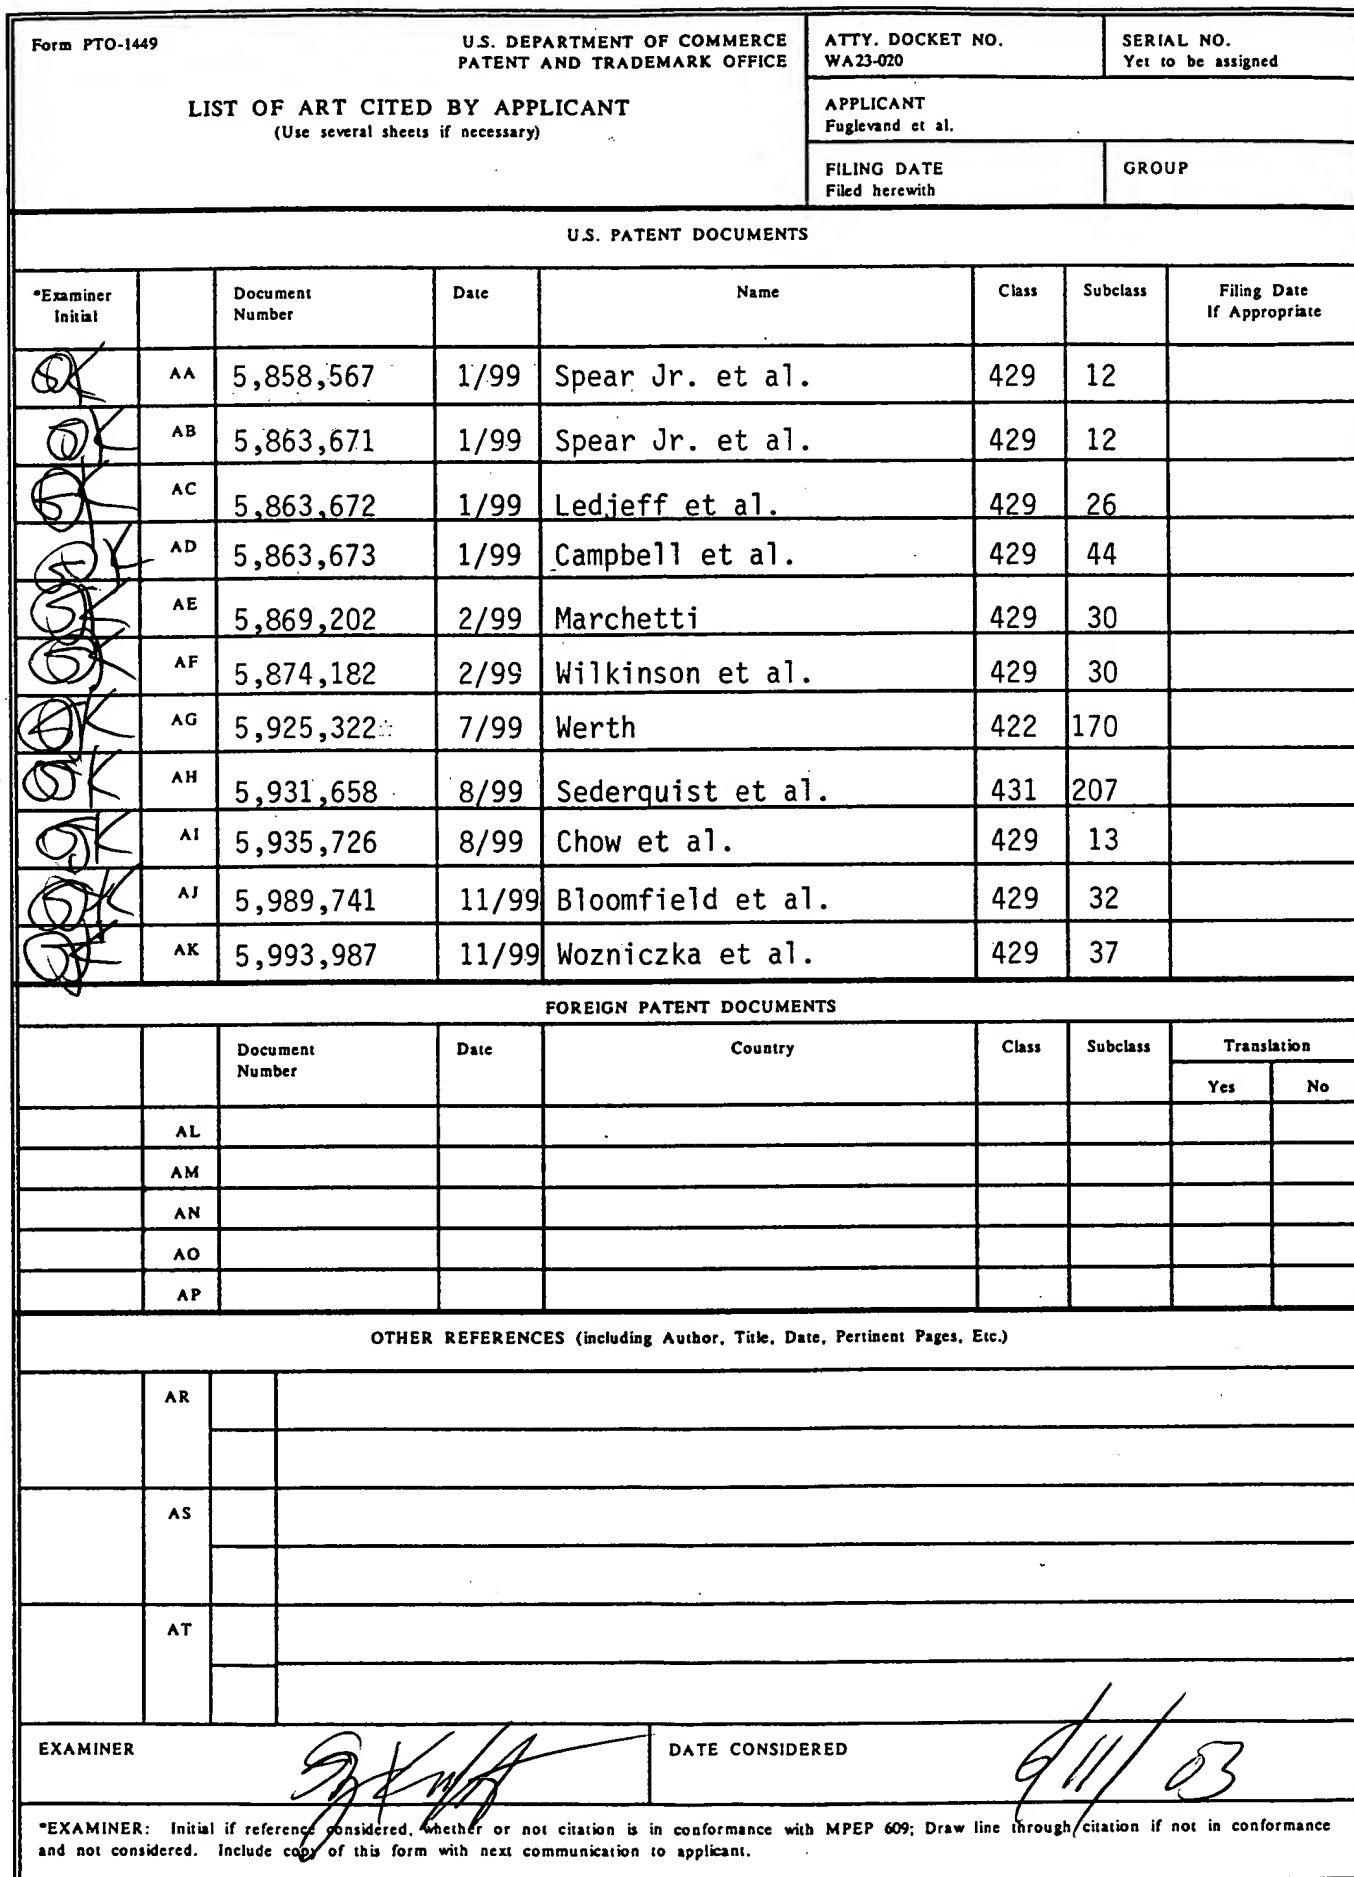 Form PTO-1449
U.S. DEPARTMENT OF COMMERCE
PATENT AND TRADEMARK OFFICE
LIST OF ART CITED BY APPLICANT
(Use several sheets if necessary)
ATTY. DOCKET NO.
WA23-020
SERIAL NO.
Yet to be assigned
APPLICANT
Fuglevand et al.
FILING DATE
Filed herewith
GROUP
U.S. PATENT DOCUMENTS
*Examiner Initial Document Number Date Name Class Subclass Filing Date If Appropriate
AA 5,858,567 1/99 Spear Jr. et al. 429 12
AB 5,863,671 1/99 Spear Jr. et al. 429 12
AC 5,863,672 1/99 Ledjeff et al. 429 26
AD 5,863,673 1/99 Campbell et al. 429 44
AE 5,869,202 2/99 Marchetti 429 30
AF 5,874,182 2/99 Wilkinson et al. 429 30
AG 5,925,322 7/99 Werth 422 170
AH 5,931,658 8/99 Sederquist et al. 431 207
AI 5,935,726 8/99 Chow et al. 429 13
AJ 5,989,741 11/99 Bloomfield et al. 429 32
AK 5,993,987 11/99 Wozniczka et al. 429 37
FOREIGN PATENT DOCUMENTS
Document Number Date Country Class Subclass Translation
Yes No
AL
AM
AN
AO
AP
OTHER REFERENCES (including Author, Title, Date, Pertinent Pages, Etc.)
AR
AS
AT
EXAMINER
DATE CONSIDERED
*EXAMINER: Initial if reference considered, whether or not citation is in conformance with MPEP 609; Draw line through citation if not in conformance
and not considered. Include copy of this form with next communication to applicant.